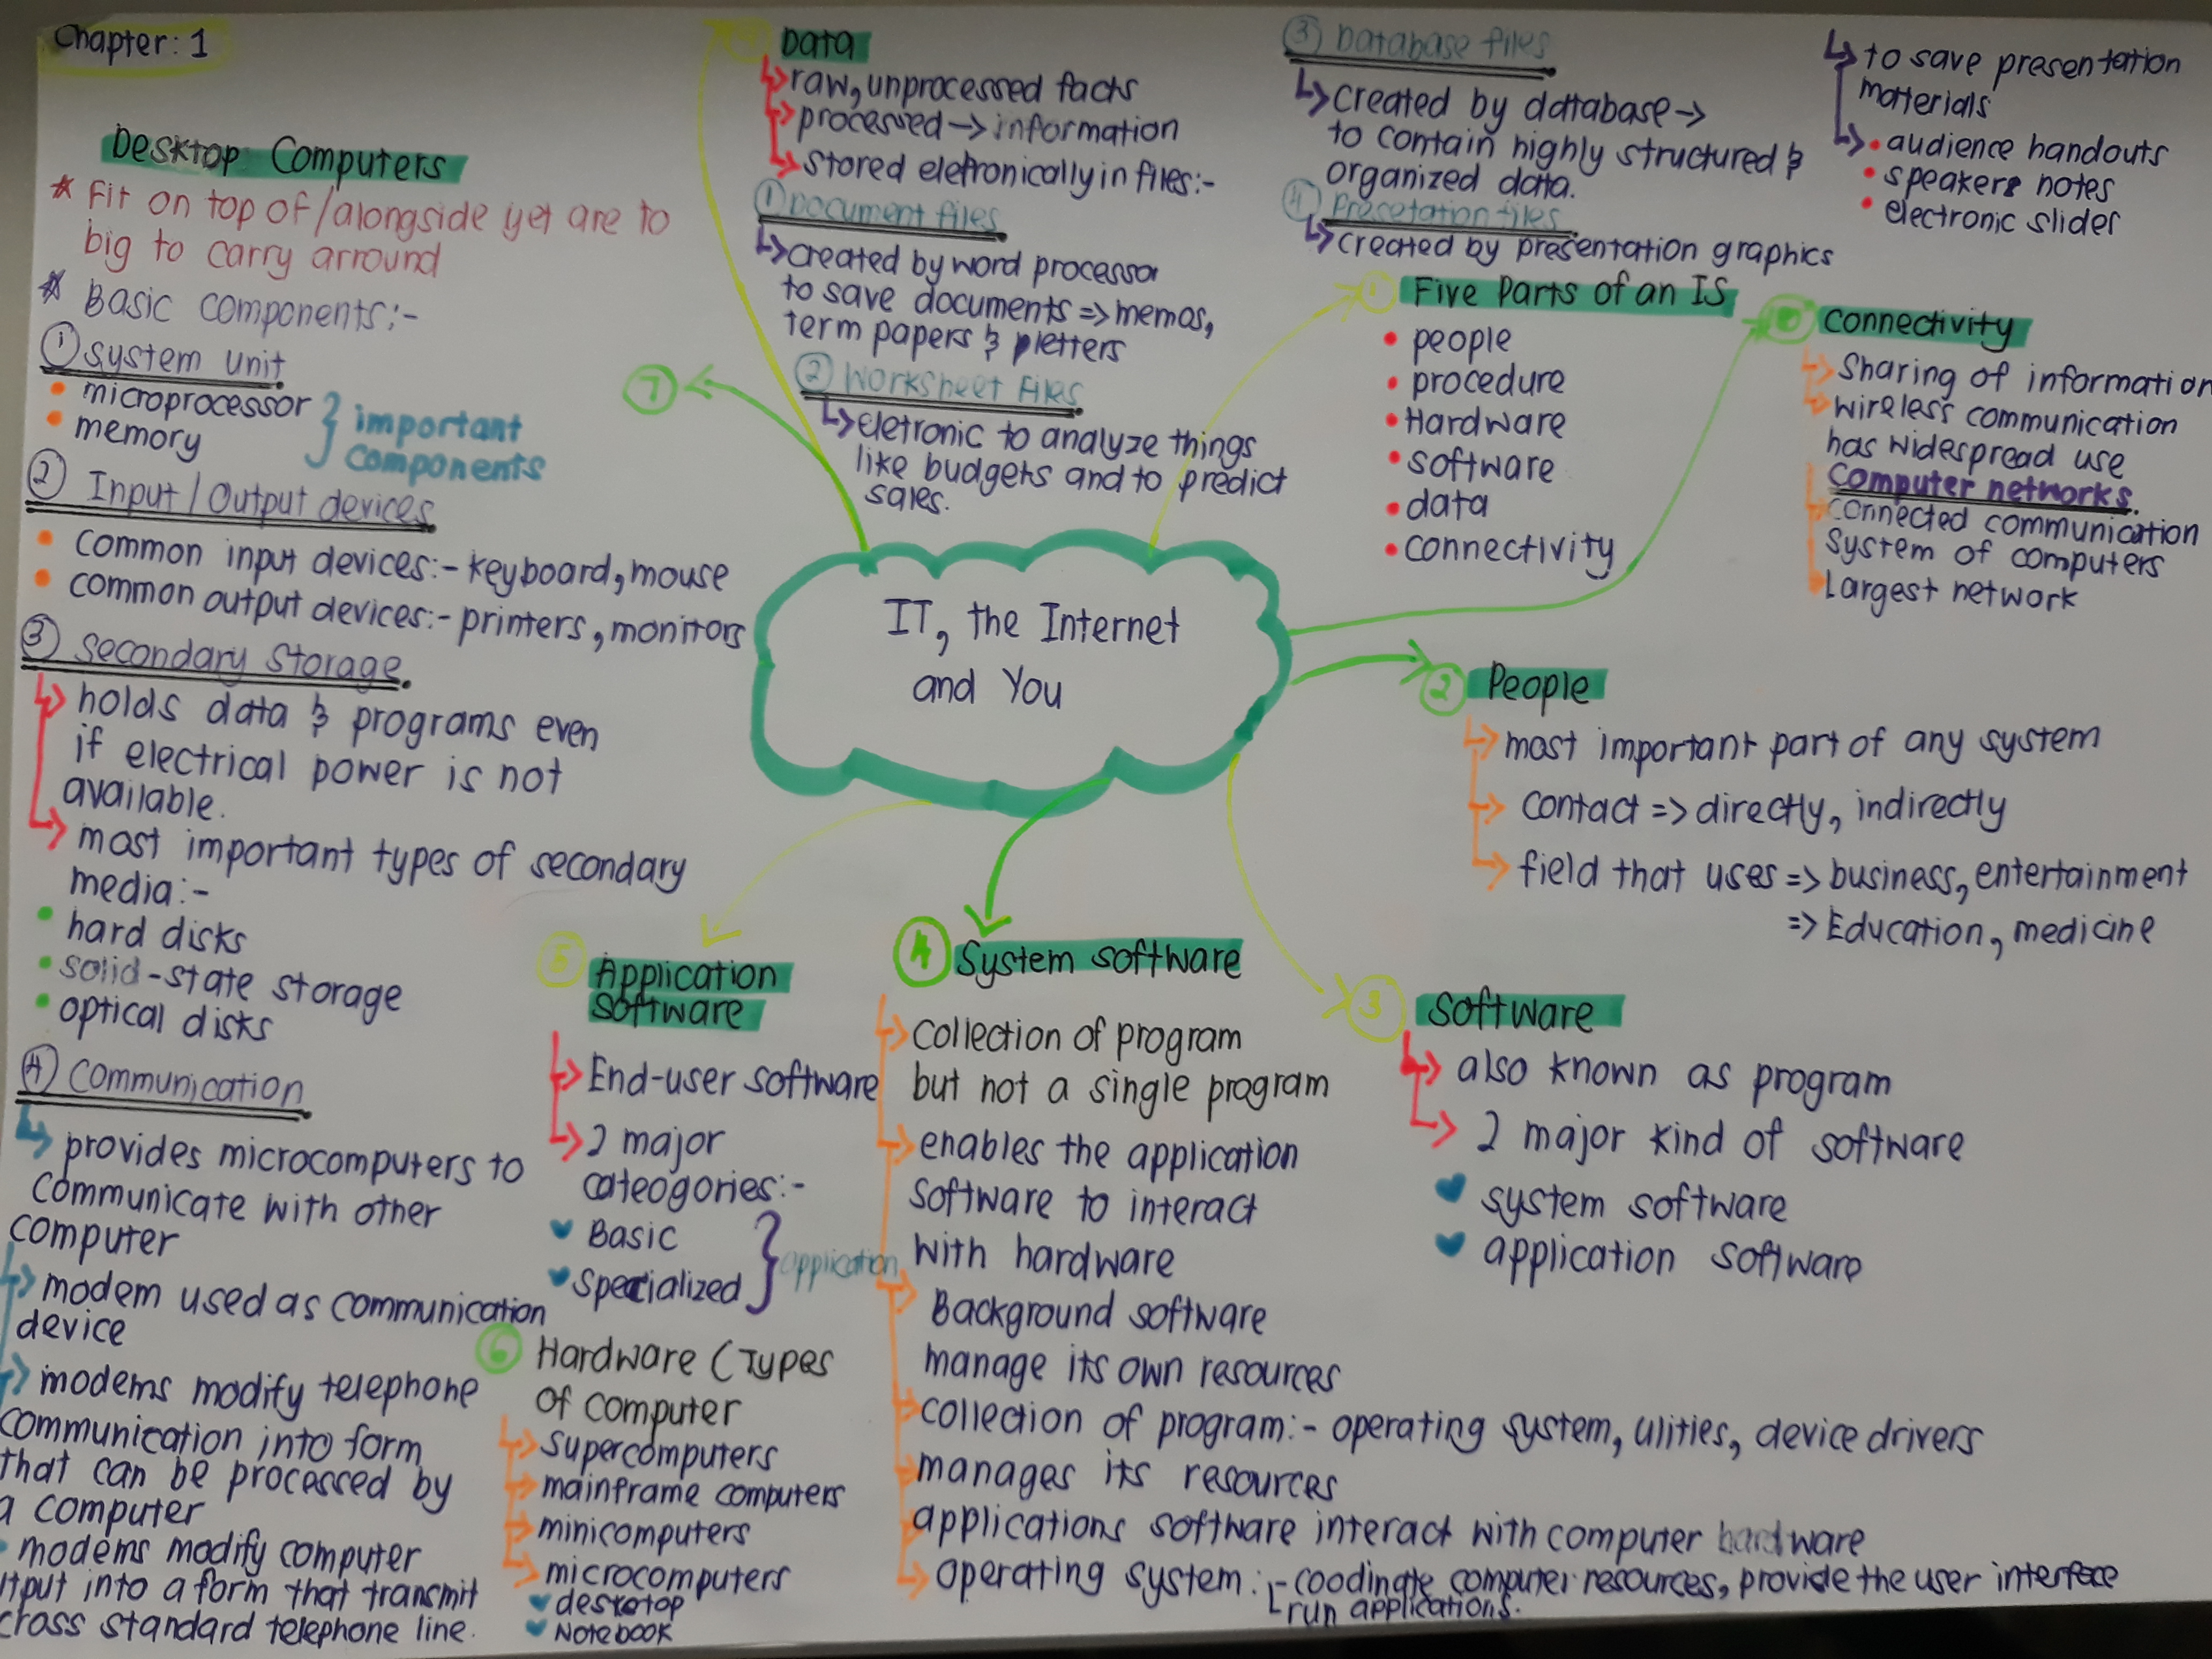 Chapter: 1
Desktop Computers
* Fit on top of/alongside yet are to
big to carry arround
* Basic components:-
① system unit
• microprocessor
• memory
} important
components
② Input/Output devices
• common input devices:- keyboard, mouse
• common output devices:- printers, monitors
③ Secondary Storage.
↳ holds data & programs even
if electrical power is not
available.
↳ most important types of secondary
media:-
• hard disks
• solid-state storage
• optical disks
④ Communication
↳ provides microcomputers to
communicate with other
computer
↳ modem used as communication
device
↳ modems modify telephone
communication into form
that can be processed by
a computer
modems modify computer
into a form that transmit
standard telephone line.
Data
↳ raw, unprocessed facts
↳ processed → information
↳ stored eletronically in files:-
① Document files
↳ created by word processor
to save documents => memos,
term papers & letters
② Worksheet Files
↳ eletronic to analyze things
like budgets and to predict
sales.
③ Database files
↳ created by database →
to contain highly structured &
organized data.
④ Presetation files
↳ created by presentation graphics
↳ to save presentation
materials
↳ • audience handouts
• speakers notes
• electronic slider
7
IT, the Internet
and You
① Five Parts of an IS
• people
• procedure
• Hardware
• software
• data
• connectivity
connectivity
↳ Sharing of information
↳ wireless communication
has widespread use
Computer networks.
connected communication
system of computers
Largest network
② People
↳ most important part of any system
↳ contact => directly, indirectly
↳ field that uses => business, entertainment
=> Education, medicine
③ Software
↳ also known as program
↳ 2 major kind of software
system software
application software
④ System software
↳ collection of program
but not a single program
↳ enables the application
software to interact
with hardware
↳ Background software
manage its own resources
↳ collection of program:- operating system, ulities, device drivers
↳ manages its resources
applications software interact with computer hardware
↳ operating system: - coodingte computer resources, provide the user interface
run applications.
⑤ Application
Software
↳ End-user software
↳ 2 major
cateogories:-
Basic
Specialized
} application
⑥ Hardware (Types
of computer
↳ supercomputers
↳ mainframe computers
↳ minicomputers
↳ microcomputers
desktop
Notebook